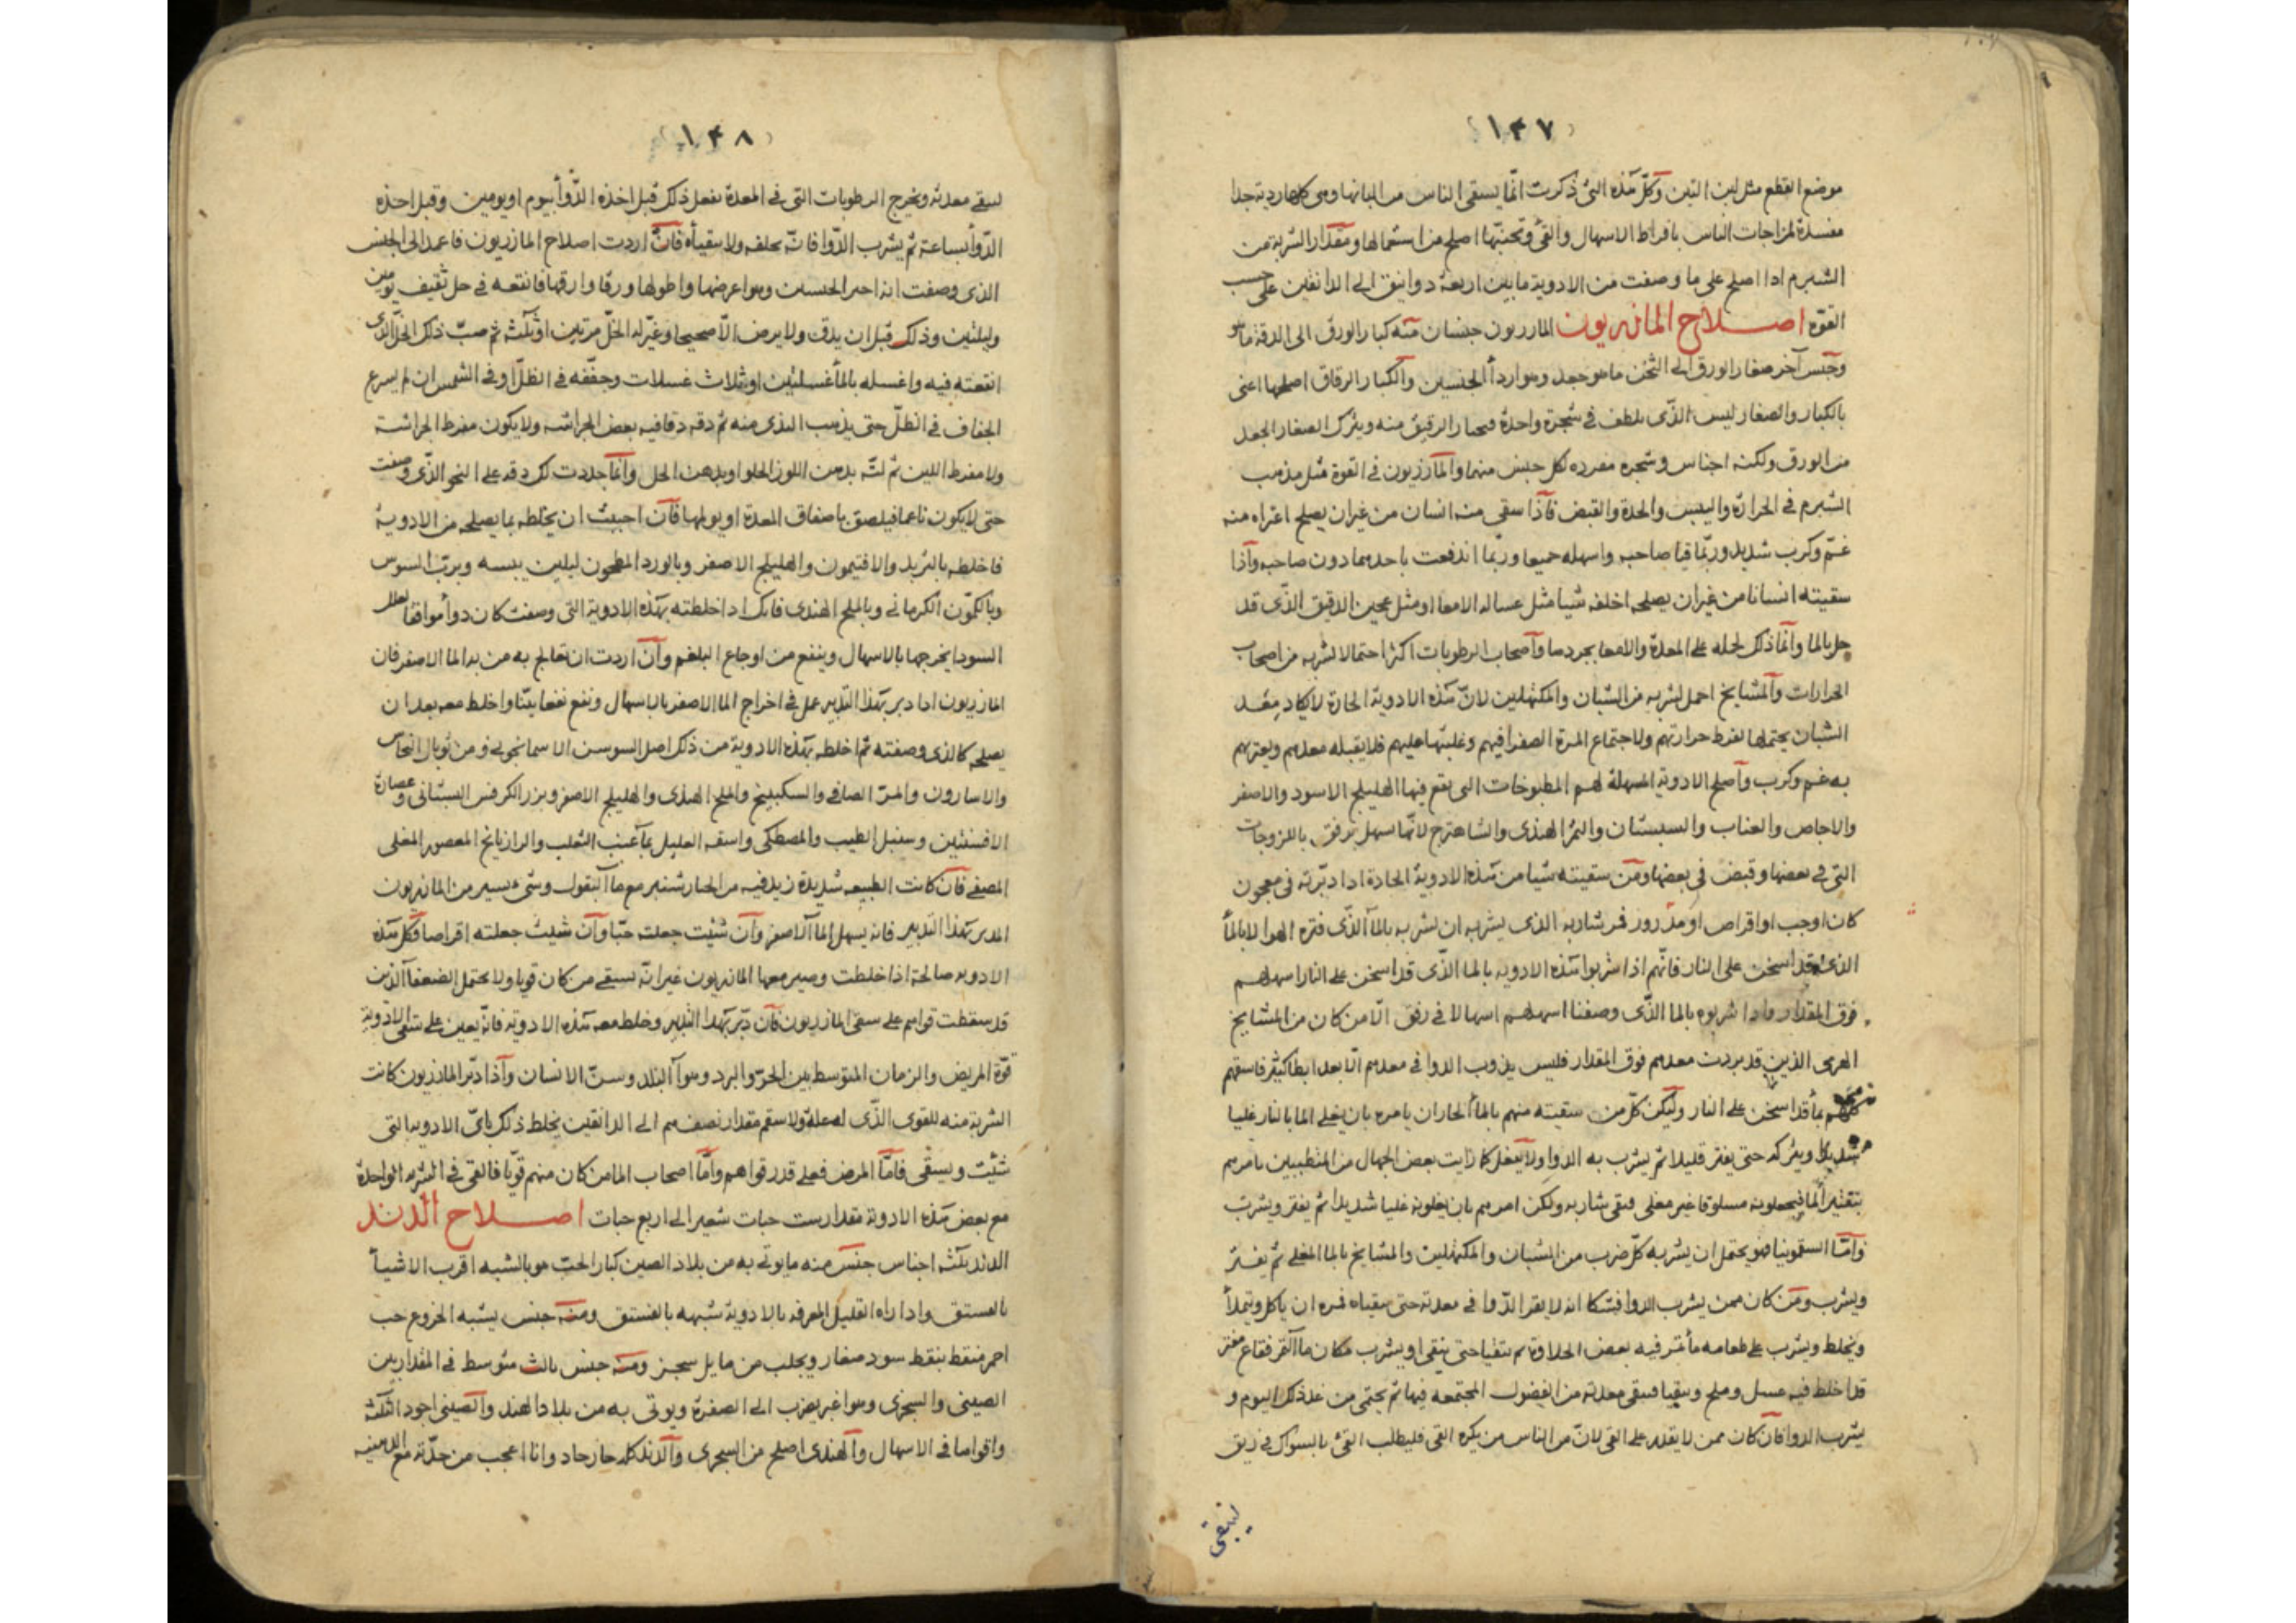 ١٤٧
موضع القطع مثل لبن التين وكلّ هذه التي ذكرت انّما يسقى الناس من البانها وهى كلها ردية جدا
مفسدة لمزاجات الناس بافراط الاسهال والقئ وتجنبها اصلح من استعمالها ومقدار الشربة من
الشبرم اذا اصلح على ما وصفت من الادوية ما بين اربعة دوانيق الى الدانقين على حسب
القوة اصلاح المازريون المازريون جنسان منه كبار الورق الى الدقة ما هو
وجنس آخر صغار الورق الى الثخن ما هو جعد وهو اردأ الجنسين والكبار الرقاق اصلحها اعنى
بالكبار والصغار ليس الذّى يلطف فى شجرة واحدة فيختار الرقيق منه ويترك الصغار الجعد
من الورق ولكنه اجناس وشجره مفرده لكل جنس منها والمازريون فى القوة مثل مذهب
الشبرم فى الحرارة واليبس والحدة والقبض فاذا سقى منه انسان من غير ان يصلح اعتراه منه
غمّ وكرب شديد وربّما قيا صاحبه واسهله جميعا وربّما اندفعت باحدهما دون صاحبه واذا
سقيته انسانا من غير ان يصلحه اخلفه شيا مثل غساله الامعا او مثل عجين الدقيق الذّى قد
حل بالما وانّما ذلك لحمله على المعدة والامعا بجردها واصحاب الرطوبات اكثر احتمالا لشربه من اصحاب
الحرارات والمشايخ احمل لشربه من الشبان والمكتهلين لانّ هذه الادوية الحارة لا يكاد معد
الشبان يحتملها لفرط حرارتهم ولاجتماع المرة الصفرا فيهم وغلبتها عليهم فلا يقبله معدهم ويعتريهم
به غم وكرب واصلح الادوية المسهلة لهم المطبوخات التى يقع فيها الهليلج الاسود والاصفر
والاجاص والعناب والسبستان والتمر الهندى والشاهترج لانّها تسهل برفق باللزوجات
التى فى بعضها وقبض فى بعضها ومن سقيته شيا من هذه الادوية الحادة اذا دبّرته فى معجون
كان او حب او اقراص او مدرور فمر شاربه الذى يشربه ان يشربه بالما الذّى فتره الهوا لا بالما
الذى قد اسخن على النار فانّهم اذا شربوا هذه الادويه بالما الذّى قد اسخن على النار اسهلهم
فوق المقدار واذا شربوه بالما الذّى وصفنا اسهلهم اسهالا فى رفق الّا من كان من المشايخ
الهرمى الذين قد بردت معدهم فوق المقدار فليس يذوب الدوا فى معدهم الّا بعد ابطا كثير فاسقهم
بما قد اسخن على النار وليكن كلّ من سقيته منهم بالما الحار ان يامره بان يغلى الما بالنار غليا
شديدا ويتركه حتى يفتر قليلا ثم يشرب به الدوا ولا يفعل كما رايت بعض الجهال من المتطببين يامرهم
بتفتير الما فيجعلونه مسلوقا غير مغلى فيقى شاربه ولكن امرهم بان يغلونه غليا شديدا ثم يفتر ويشرب
وامّا السقمونيا فهو يحتمل ان يشربه كلّ ضرب من الشبان والمكتهلين والمشايخ بالما المغلى ثم يفتر
ويشرب ومن كان ممن يشرب الدوا فيشكا انه لا يقر الدّوا فى معدته حتى يتقياه فمره ان ياكل ويتملأ
ويخلط ويشرب على طعامه ما تمر فيه بعض الحلاوة ثم يتقيا حتى ينقى او يشرب مكان ما التمر فقاع مفتر
قد اخلط فيه عسل وملح ويتقيا فيبقى معدته من الفضول المجتمعه فيها ثم يحتمى من غد ذلك اليوم و
يشرب الدوا فان كان ممن لا يقدر على القى لانّ من الناس من يكره القى فليطلب القئ بالسواك فى ريق
ليبقى
١٤٨
ليبقى معدته ويخرج الرطوبات التى فى المعدة يفعل ذلك قبل اخذه الدّوأ بيوم او يومين وقبل اخذه
الدّوأ بساعة ثم يشرب الدّوا فانّه يخلفه ولا يتقيأه فان اردت اصلاح المازريون فاعمد الى الجنس
الذى وصفت انه احد الجنسين وهو اعرضها واطولها ورقا وارقها فانقعه فى خل ثقيف يومين
وليلتين وذلك قبل ان يدق ولا يرض الّا صحيحا وغيّر له الخلّ مرتين او ثلثه ثم صبّ ذلك الخل الّذى
انقعته فيه واغسله بالمأ غسلتين او ثلاث غسلات وجففه فى الظلّ او فى الشمس ان لم يسرع
الجفاف فى الظلّ حتى يذهب الندى منه ثم دقه دقا فيه بعض الجراشه ولا يكون مفرط الجراشه
ولا مفرط اللين ثم لتّه بدهن اللوز الحلو او بدهن الحل وانّما حددت لك دقه على النحو الذّى وصفت
حتى لا يكون ناعما فيلصق باصفاق المعدة او يولمها فان احببت ان يخلطه بما يصلحه من الادوية
فاخلطه بالتربد والافتيمون والهليلج الاصفر وبالورد المطحون ليلين يبسه وبربّ السوس
وبالكمّون الكرمانى وبالملح الهندى فانك اذا خلطته بهذه الادوية التى وصفت كان دوأ موافقا لعلل
السودا يخرجها بالاسهال وينفع من اوجاع البلغم وان اردت ان تعالج به من بدا الما الاصفر فان
المازريون اذا دبر بهذا التدبير عمل فى اخراج الما الاصفر بالاسهال ونفع نفعا بيّنا واخلط معه بعد ان
يصلحه كالذى وصفته ثم اخلطه بهذه الادوية من ذلك اصل السوسن الاسمانجونى ومن توبال النحاس
والاسارون والمر الصافى والسكبينج والملح الهندى والهليلج الاصفر وبزر الكرفس البستانى وعصارة
الافسنتين وسنبل الطيب والمصطكى واسقه العليل بما عنب الثعلب والرازيانج المعصور المغلى
المصفى فان كانت الطبيعه شديدة زيد فيه من الخيار شنبر مع ما البقول وشىء يسير من المازريون
المدبر بهذا التدبير فانه يسهل الما الاصفر وان شئت جعلته حبّا وان شيت جعلته اقراصا فكل هذه
الادويه صالحة اذا خلطت وصير معها المازريون غير انّه يسقى من كان قويا ولا يحتمل الضعفا الذين
قد سقطت قواهم على سقى المازريون فان دبّر بهذا التدبير وخلط معه هذه الادوية فانّه يعين على سقى الادوية
قوّة المريض والزمان المتوسط بين الحرّ والبرد وهوآ البلد وسنّ الانسان واذا دبّر المازريون كانت
الشربة منه للقوى الذّى له علة ولا سقم مقدار نصف درهم الى الدانقين يخلط ذلك باىّ الادويه التى
شئت ويسقى فامّا المرضى فعلى قدر قواهم وامّا اصحاب الما من كان منهم قويّا فالقى فى الشربه الواحدة
مع بعض هذه الادوية مقدار ست حبات شعير الى اربع حبات اصلاح الدند
الدند ثلثه اجناس جنس منه ما يوتى به من بلاد الصين كبار الحبّ هو بالشبه اقرب الاشيأ
بالفستق واذا راه القليل المعرفه بالادوية شبهه بالفستق ومنه جنس يشبه الخروع حب
احمر منقط بنقط سود صغار ويجلب من ما يلى سجز ومنه جنس ثالث متوسط فى المقدار بين
الصينى والسجزى وهو اغبر يضرب الى الصفرة ويوتى به من بلاد الهند والصينى اجود الثلثه
واقواها فى الاسهال والهندى اصلح من السجزى والدند كله حار حاد وانا اعجب من حدّته مع الدهنيه